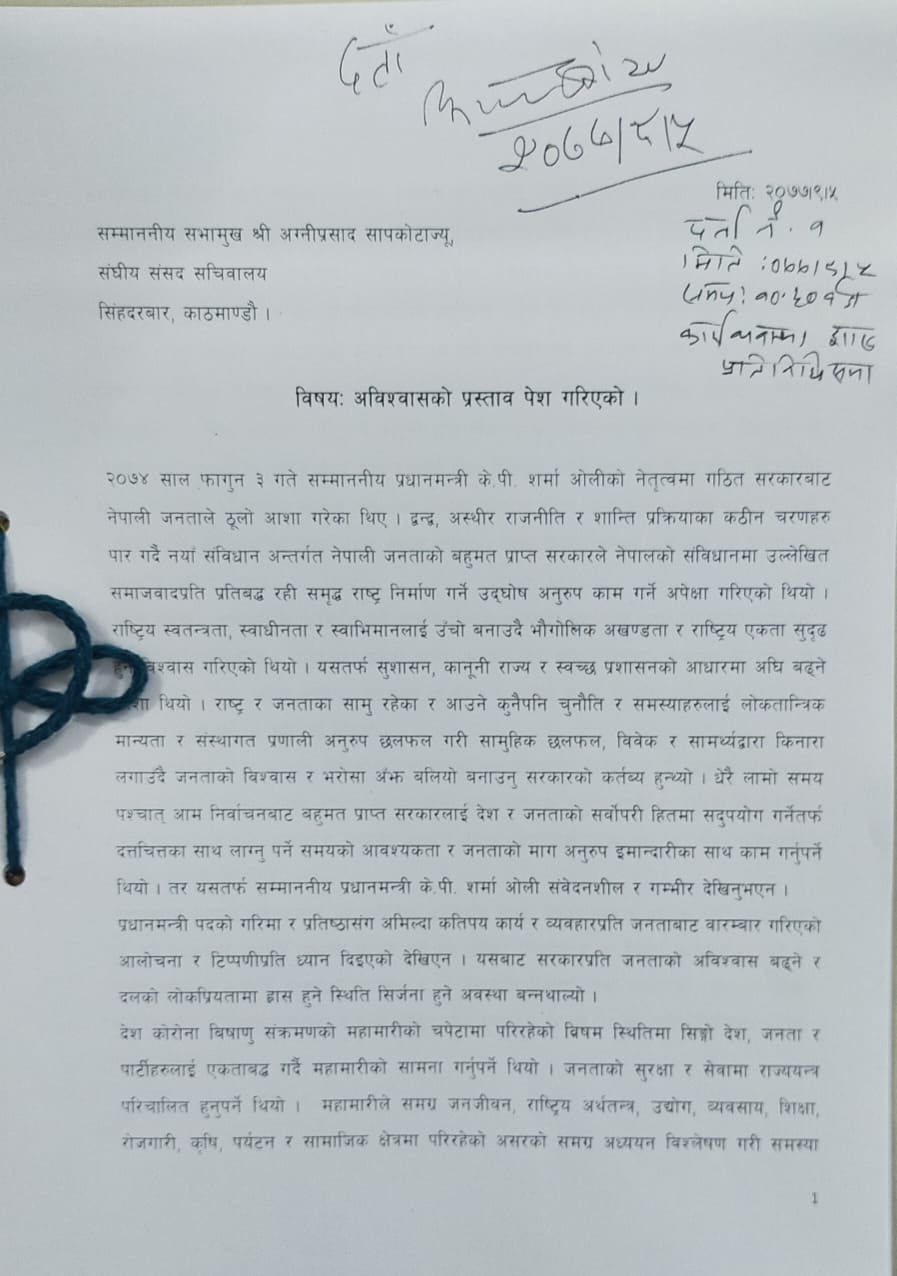 दर्ता
२०७७/९/५
मिति: २०७७।९।५
सम्माननीय सभामुख श्री अग्नीप्रसाद सापकोटाज्यू,
दर्ता नं. १
संघीय संसद सचिवालय
मिति :०७७/९/५
सिंहदरबार, काठमाण्डौ ।
प्रतिनिधि सभा
विषय: अविश्वासको प्रस्ताव पेश गरिएको ।
२०७४ साल फागुन ३ गते सम्माननीय प्रधानमन्त्री के.पी. शर्मा ओलीको नेतृत्वमा गठित सरकारबाट
नेपाली जनताले ठूलो आशा गरेका थिए । द्वन्द्व, अस्थीर राजनीति र शान्ति प्रक्रियाका कठीन चरणहरु
पार गर्दै नयाँ संविधान अन्तर्गत नेपाली जनताको बहुमत प्राप्त सरकारले नेपालको संविधानमा उल्लेखित
समाजवादप्रति प्रतिबद्ध रही समृद्ध राष्ट्र निर्माण गर्ने उद्घोष अनुरुप काम गर्ने अपेक्षा गरिएको थियो ।
राष्ट्रिय स्वतन्त्रता, स्वाधीनता र स्वाभिमानलाई उँचो बनाउदै भौगोलिक अखण्डता र राष्ट्रिय एकता सुदृढ
विश्वास गरिएको थियो । यसतर्फ सुशासन, कानूनी राज्य र स्वच्छ प्रशासनको आधारमा अघि बढ्ने
थियो । राष्ट्र र जनताका सामु रहेका र आउने कुनैपनि चुनौति र समस्याहरुलाई लोकतान्त्रिक
मान्यता र संस्थागत प्रणाली अनुरुप छलफल गरी सामुहिक छलफल, विवेक र सामर्थ्यद्वारा किनारा
लगाउँदै जनताको विश्वास र भरोसा अँझ बलियो बनाउनु सरकारको कर्तब्य हुन्थ्यो । धेरै लामो समय
पश्चात् आम निर्वाचनबाट बहुमत प्राप्त सरकारलाई देश र जनताको सर्वोपरी हितमा सदुपयोग गर्नेतर्फ
दत्तचित्तका साथ लाग्नु पर्ने समयको आवश्यकता र जनताको माग अनुरुप इमान्दारीका साथ काम गर्नुपर्ने
थियो । तर यसतर्फ सम्माननीय प्रधानमन्त्री के.पी. शर्मा ओली संवेदनशील र गम्भीर देखिनुभएन ।
प्रधानमन्त्री पदको गरिमा र प्रतिष्ठासंग अमिल्दा कतिपय कार्य र व्यवहारप्रति जनताबाट वारम्बार गरिएको
आलोचना र टिप्पणीप्रति ध्यान दिइएको देखिएन । यसबाट सरकारप्रति जनताको अविश्वास बढ्ने र
दलको लोकप्रियतामा ह्रास हुने स्थिति सिर्जना हुने अवस्था बन्नथाल्यो ।
देश कोरोना बिषाणु संक्रमणको महामारीको चपेटामा परिरहेको बिषम स्थितिमा सिङ्गो देश, जनता र
पार्टीहरुलाई एकताबद्ध गर्दै महामारीको सामना गर्नुपर्ने थियो । जनताको सुरक्षा र सेवामा राज्ययन्त्र
परिचालित हुनुपर्ने थियो । महामारीले समग्र जनजीवन, राष्ट्रिय अर्थतन्त्र, उद्योग, व्यवसाय, शिक्षा,
रोजगारी, कृषि, पर्यटन र सामाजिक क्षेत्रमा परिरहेको असरको समग्र अध्ययन विश्लेषण गरी समस्या
1